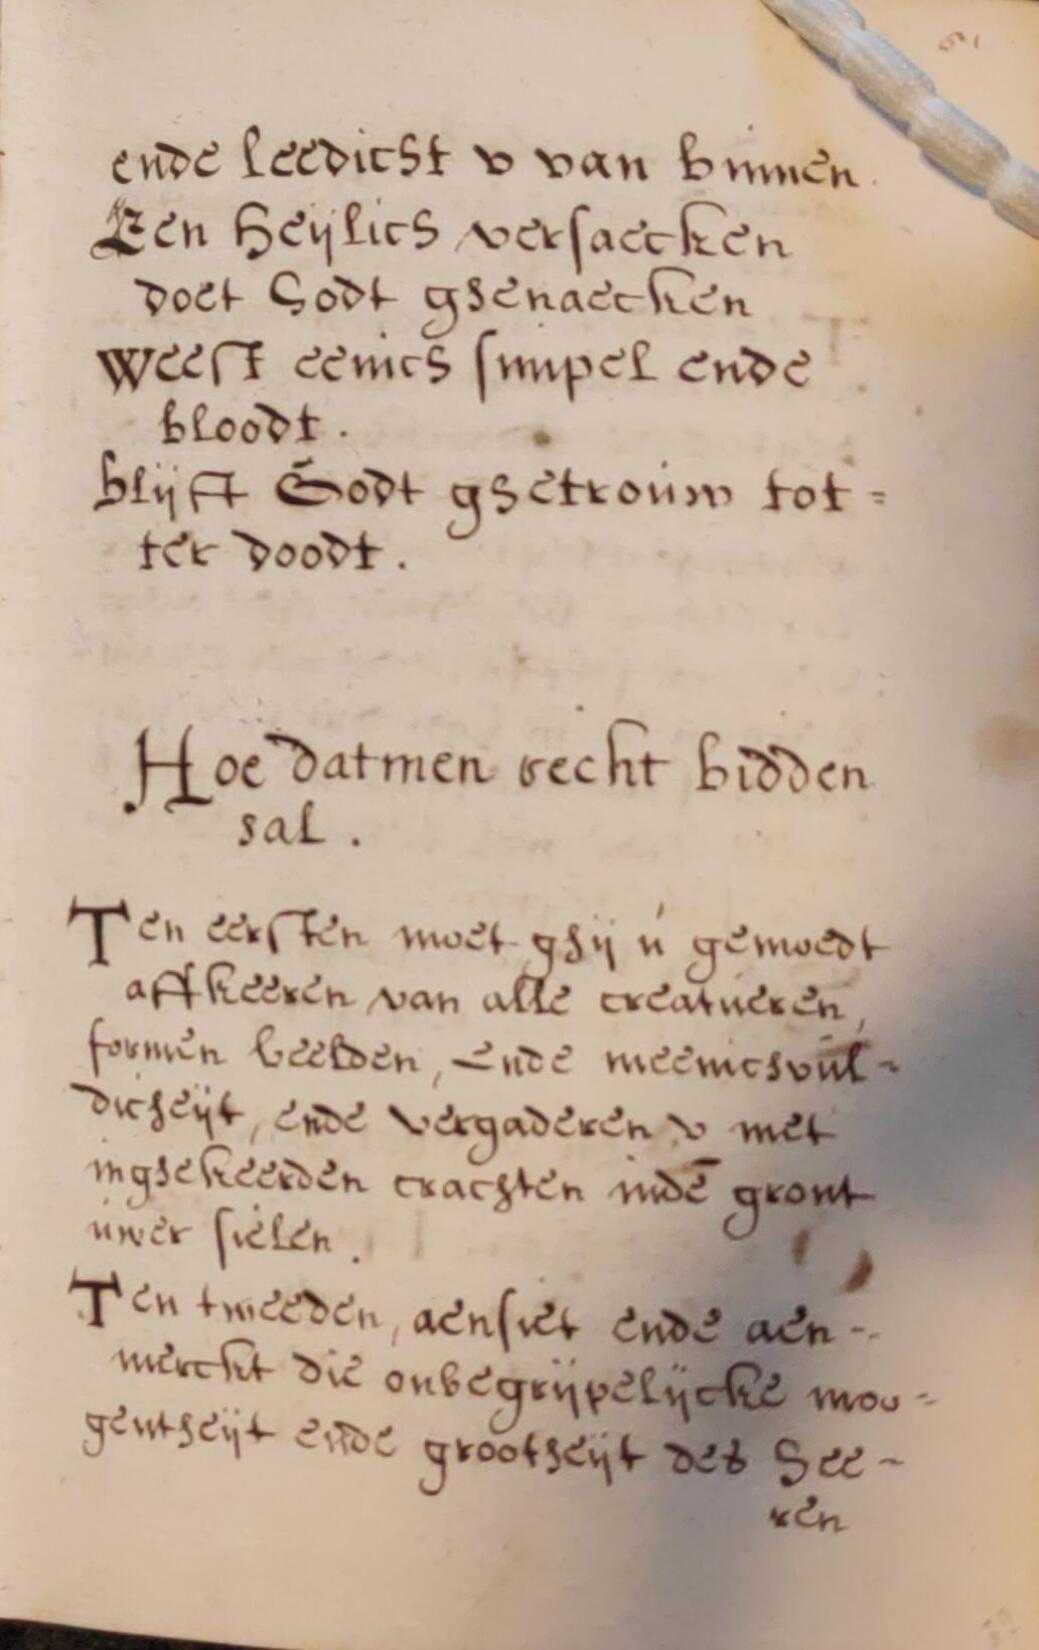 ende leedicht v van binnen.
Een heijlich versaecken
doet Godt ghenaecken
weest eenich simpel ende
bloodt.
blijft Godt ghetrouw tot=
ter doodt.
Hoe datmen recht bidden
sal.
Ten eersten moet ghij u gemoedt
affkeeren van alle creatueren,
formen beelden, ende meenichvul-
dicheijt, ende vergaderen v met
inghekeerden crachten inde gront
uwer sielen.
Ten tweeden, aensiet ende aen-
merckt die onbegrijpelijcke mo-
gentheijt ende grootheijt des hee-
ren